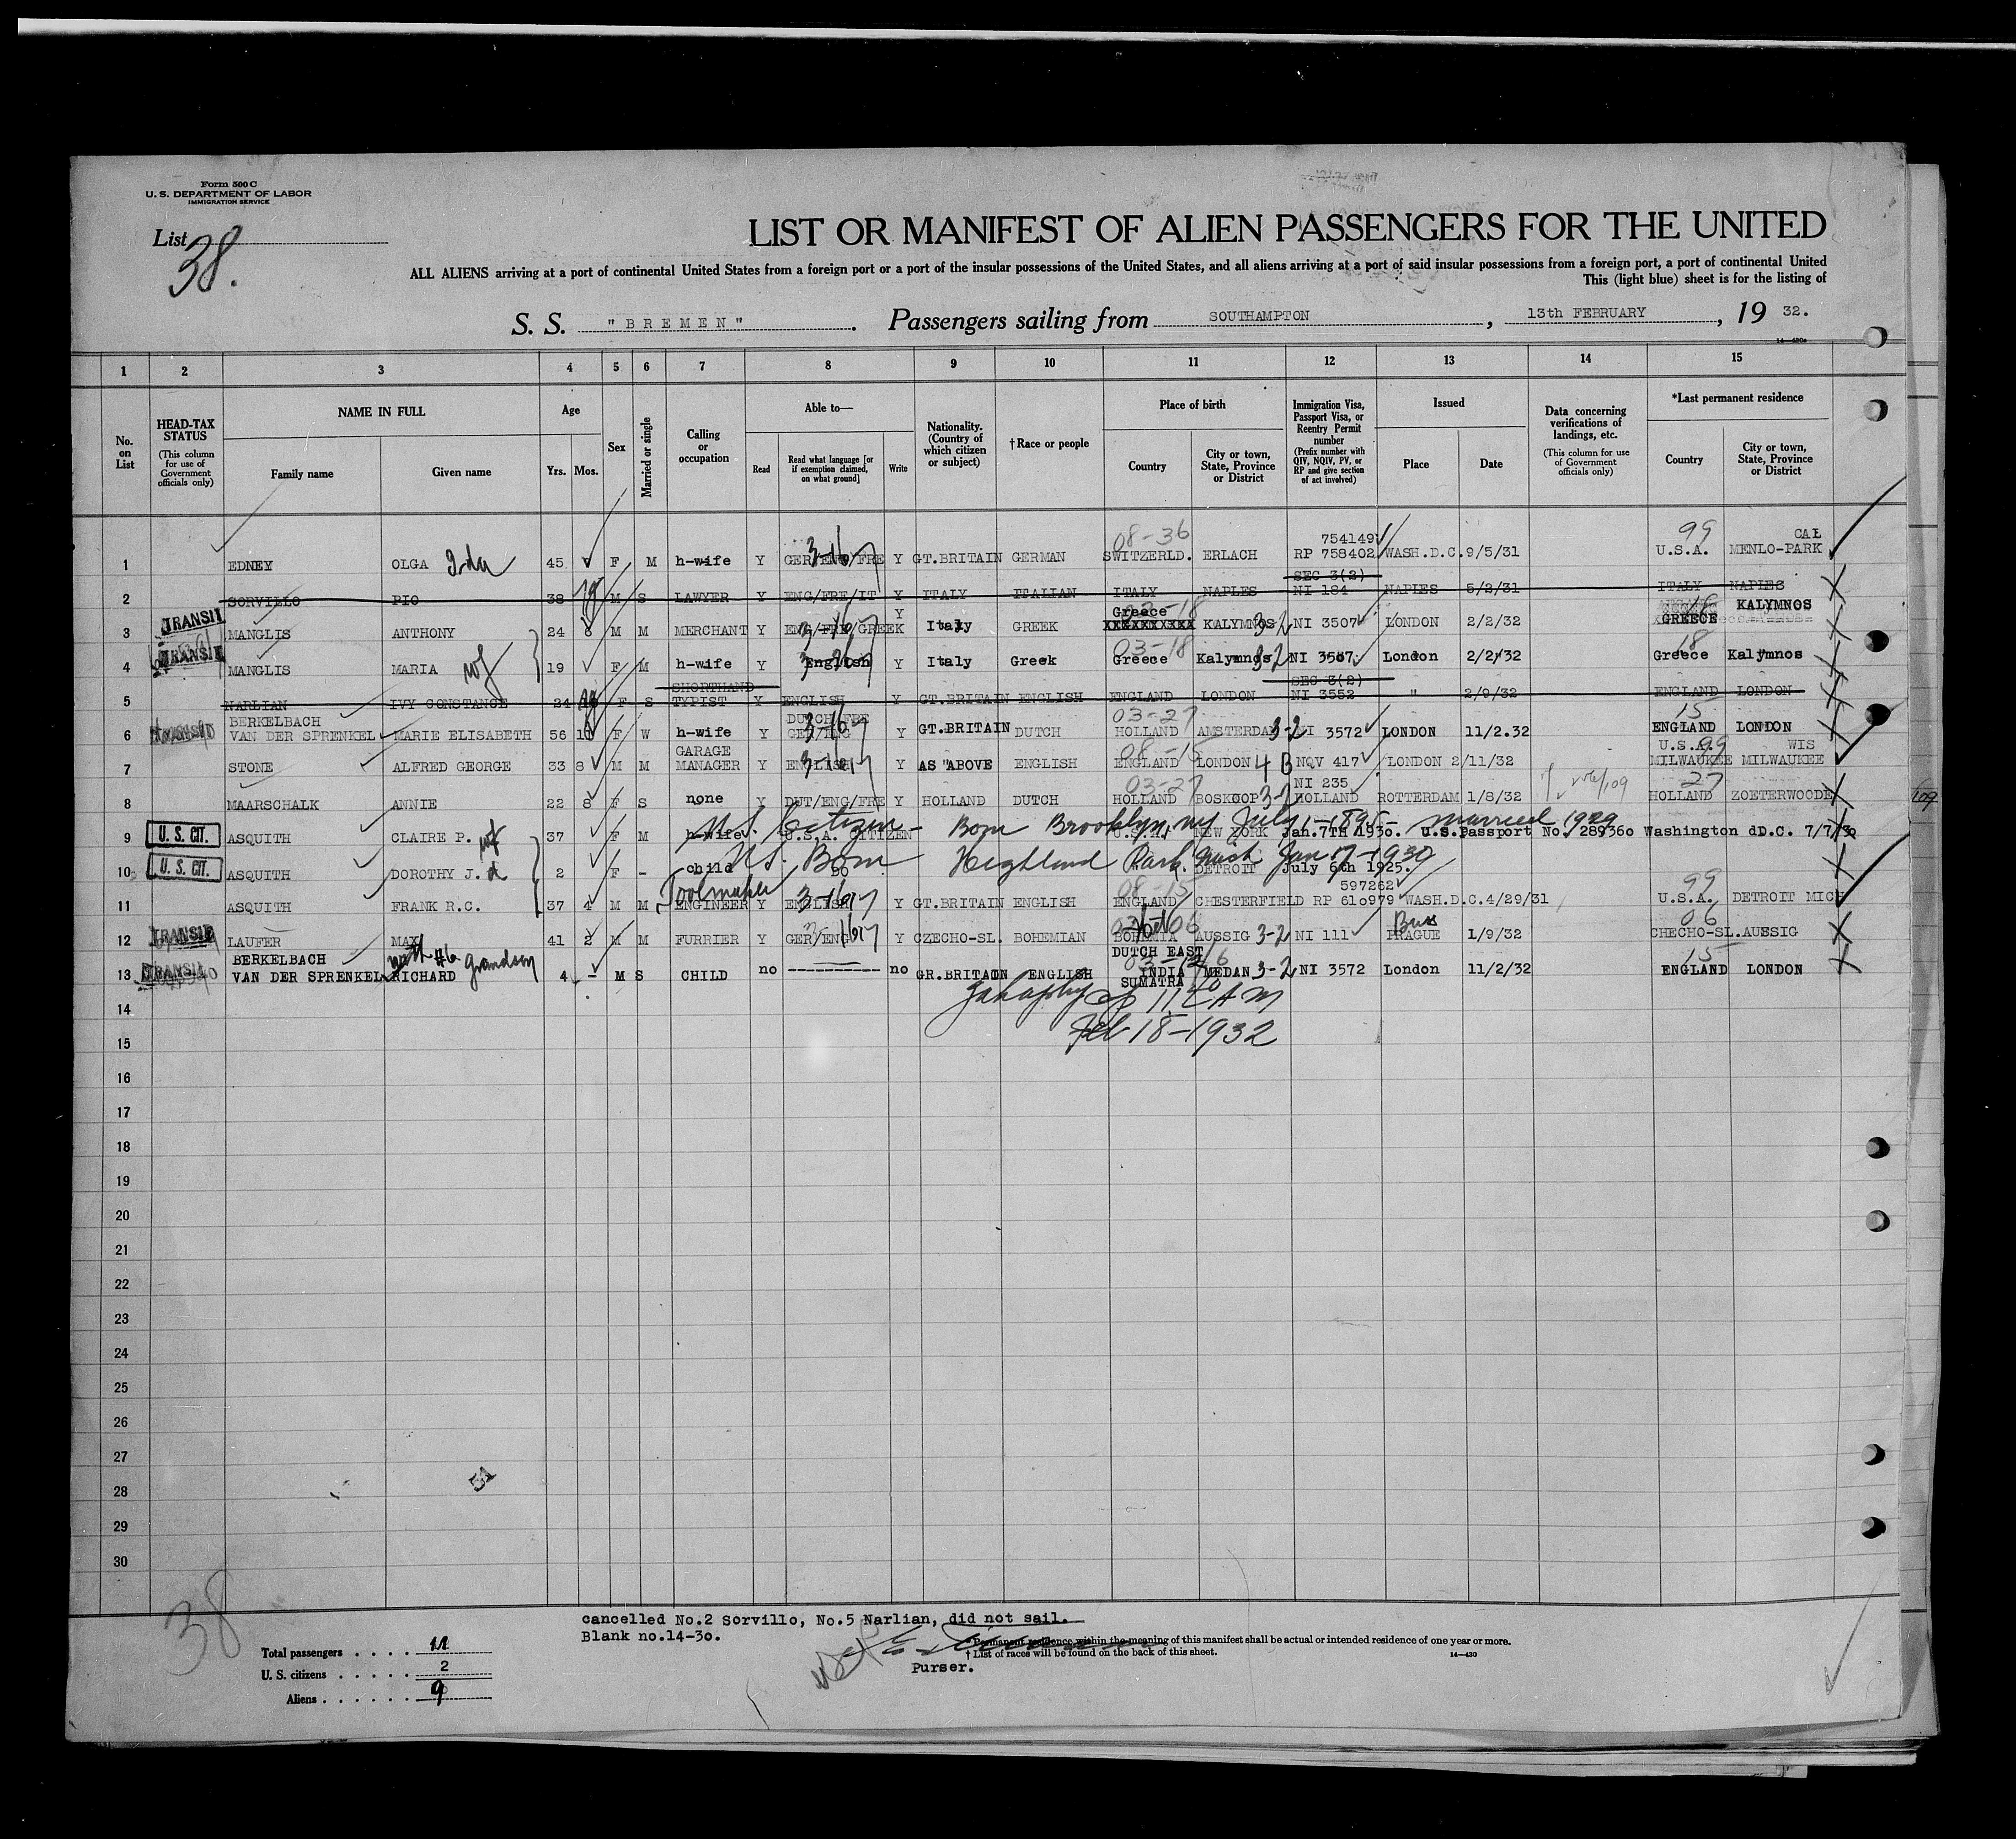 Form 500 C
U. S. DEPARTMENT OF LABOR
IMMIGRATION SERVICE
List 38.
LIST OR MANIFEST OF ALIEN PASSENGERS FOR THE UNITED
ALL ALIENS arriving at a port of continental United States from a foreign port or a port of the insular possessions of the United States, and all aliens arriving at a port of said insular possessions from a foreign port, a port of continental United
This (light blue) sheet is for the listing of
S. S. "BREMEN". Passengers sailing from SOUTHAMPTON, 13th FEBRUARY, 19 32.
1 2 3 4 5 6 7 8 9 10 11 12 13 14 15
No. on List
HEAD-TAX STATUS (This column for use of Government officials only)
NAME IN FULL
Family name Given name
Age
Yrs. Mos.
Sex
Married or single
Calling or occupation
Able to—
Read Read what language [or if exemption claimed, on what ground] Write
Nationality. (Country of which citizen or subject)
†Race or people
Place of birth
Country City or town, State, Province or District
Immigration Visa, Passport Visa, or Reentry Permit number (Prefix number with QIV, NQIV, PV, or RP and give section of act involved)
Issued
Place Date
Data concerning verifications of landings, etc. (This column for use of Government officials only)
*Last permanent residence
Country City or town, State, Province or District
08-36 754149 99 CAL
1 EDNEY OLGA Ida 45 F M h-wife Y GER/ENG/FRE Y GT.BRITAIN GERMAN SWITZERLD. ERLACH RP 758402 WASH.D.C. 9/5/31 U.S.A. MENLO-PARK
SEC 3(2)
2 SORVILLO PIO 38 M S LAWYER Y ENG/FRE/IT Y ITALY ITALIAN ITALY NAPLES NI 184 NAPLES 5/2/31 ITALY NAPLES
TRANSIT Y Greece 18 KALYMNOS
3 MANGLIS ANTHONY 24 8 M M MERCHANT Y ENG/FRE/GREEK Y Italy GREEK XXXXXXXXXX KALYMNOS 3-2 NI 3507 LONDON 2/2/32 GREECE
TRANSIT 03-18 18
4 MANGLIS MARIA wf 19 F M h-wife Y English Y Italy Greek Greece Kalymnos 3-2 NI 3507 London 2/2/32 Greece Kalymnos
SHORTHAND SEC 3(2)
5 NARLIAN IVY CONSTANCE 24 F S TYPIST Y ENGLISH Y GT.BRITAIN ENGLISH ENGLAND LONDON NI 3552 " 2/9/32 ENGLAND LONDON
BERKELBACH DUTCH/FRE 03-27 15
6 VAN DER SPRENKEL MARIE ELISABETH 56 F W h-wife Y GER/ENG Y GT.BRITAIN DUTCH HOLLAND AMSTERDAM 3-2 NI 3572 LONDON 11/2.32 ENGLAND LONDON
GARAGE 08-15 U.S.A. 99 WIS
7 STONE ALFRED GEORGE 33 8 M M MANAGER Y ENGLISH Y AS ABOVE ENGLISH ENGLAND LONDON 4 B NQV 417 LONDON 2/11/32 MILWAUKEE MILWAUKEE
03-27 NI 235 27
8 MAARSCHALK ANNIE 22 8 F S none Y DUT/ENG/FRE Y HOLLAND DUTCH HOLLAND BOSKOOP 3-2 HOLLAND ROTTERDAM 1/8/32 HOLLAND ZOETERWOUDE
U.S. Citizen - Born Brooklyn, NY July 1-1895- married 1929
9 U. S. CIT. ASQUITH CLAIRE P. wf 37 F M h-wife U.S.A. CITIZEN NEW YORK Jan.7TH 1930. U.S.Passport No. 289360 Washington dD.C. 7/7/30
U.S. Born Highland Park, Mich Jan 17-1930
10 U. S. CIT. ASQUITH DOROTHY J. d 2 F - child DO DETROIT July 6th 1925.
Toolmaker 08-15 597262 99
11 ASQUITH FRANK R.C. 37 4 M M ENGINEER Y ENGLISH Y GT.BRITAIN ENGLISH ENGLAND CHESTERFIELD RP 610979 WASH.D.C. 4/29/31 U.S.A. DETROIT MICH
TRANSIT 06
12 LAUFER MAX 41 2 M M FURRIER Y GER/ENG Y CZECHO-SL. BOHEMIAN BOHEMIA AUSSIG 3-2 NI 111 PRAGUE 1/9/32 CHECHO-SL. AUSSIG
TRANSIT BERKELBACH with #6 grandson DUTCH EAST 15
13 VAN DER SPRENKEL RICHARD 4 - M S CHILD no ----------- no GR.BRITAIN ENGLISH INDIA MEDAN 3-2 NI 3572 London 11/2/32 ENGLAND LONDON
SUMATRA
14
Feb 18-1932
15
16
17
18
19
20
21
22
23
24
25
26
27
28
29
30
38
cancelled No.2 Sorvillo, No.5 Narlian, did not sail.
Blank no.14-30.
Purser.
Total passengers . . . . 11
U. S. citizens . . . . . 2
Aliens . . . . . . 9
* Permanent residence within the meaning of this manifest shall be actual or intended residence of one year or more.
† List of races will be found on the back of this sheet.
14—430